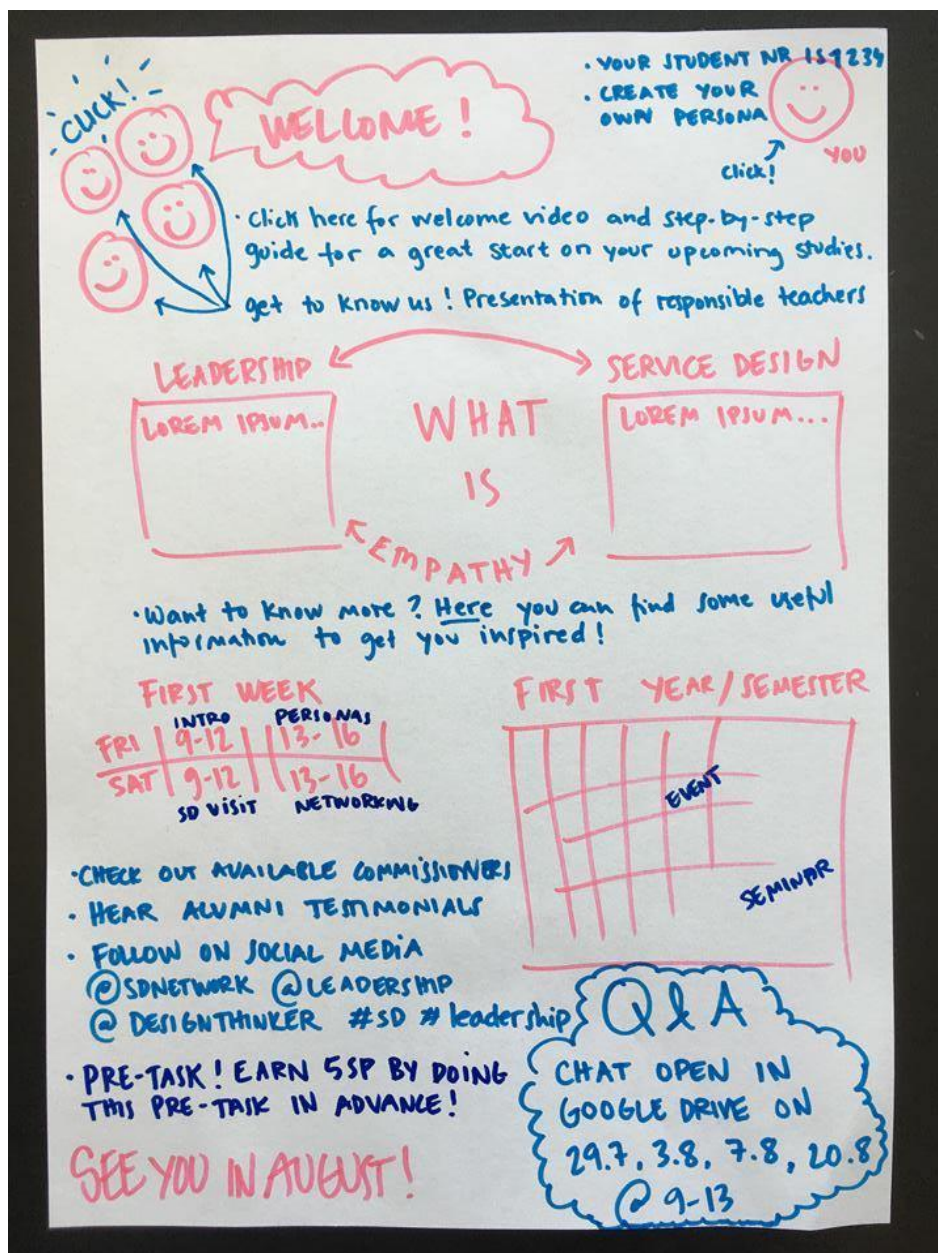 CLICK!
WELCOME!
· YOUR STUDENT NR 151234
· CREATE YOUR
OWN PERSONA
Click!
YOU
· Click here for welcome video and step-by-step
guide for a great start on your upcoming studies.
get to know us! Presentation of responsible teachers
LEADERSHIP
SERVICE DESIGN
LOREM IPSUM..
WHAT
IS
LOREM IPSUM...
EMPATHY
· Want to know more? Here you can find some useful
information to get you inspired!
FIRST WEEK
INTRO PERSONAS
FRI 9-12 13-16
SAT 9-12 13-16
SD VISIT NETWORKING
FIRST YEAR/SEMESTER
EVENT
SEMINAR
· CHECK OUT AVAILABLE COMMISSIONERS
· HEAR ALUMNI TESTIMONIALS
· FOLLOW ON SOCIAL MEDIA
@SDNETWORK @LEADERSHIP
@DESIGNTHINKER #SD #leadership
· PRE-TASK! EARN 5SP BY DOING
THIS PRE-TASK IN ADVANCE!
SEE YOU IN AUGUST!
Q&A
CHAT OPEN IN
GOOGLE DRIVE ON
29.7, 3.8, 7.8, 20.8
@ 9-13